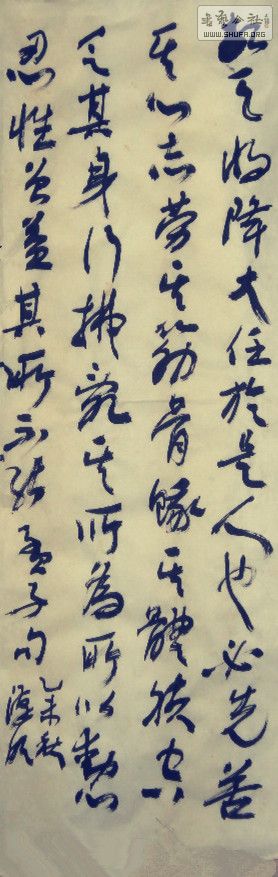 书艺公社
WWW.SHUFA.ORG
故天将降大任於是人也必先苦
其心志劳其筋骨餓其體膚空
乏其身行拂乱其所為所以動心
忍性曾益其所不能孟子句
乙未秋